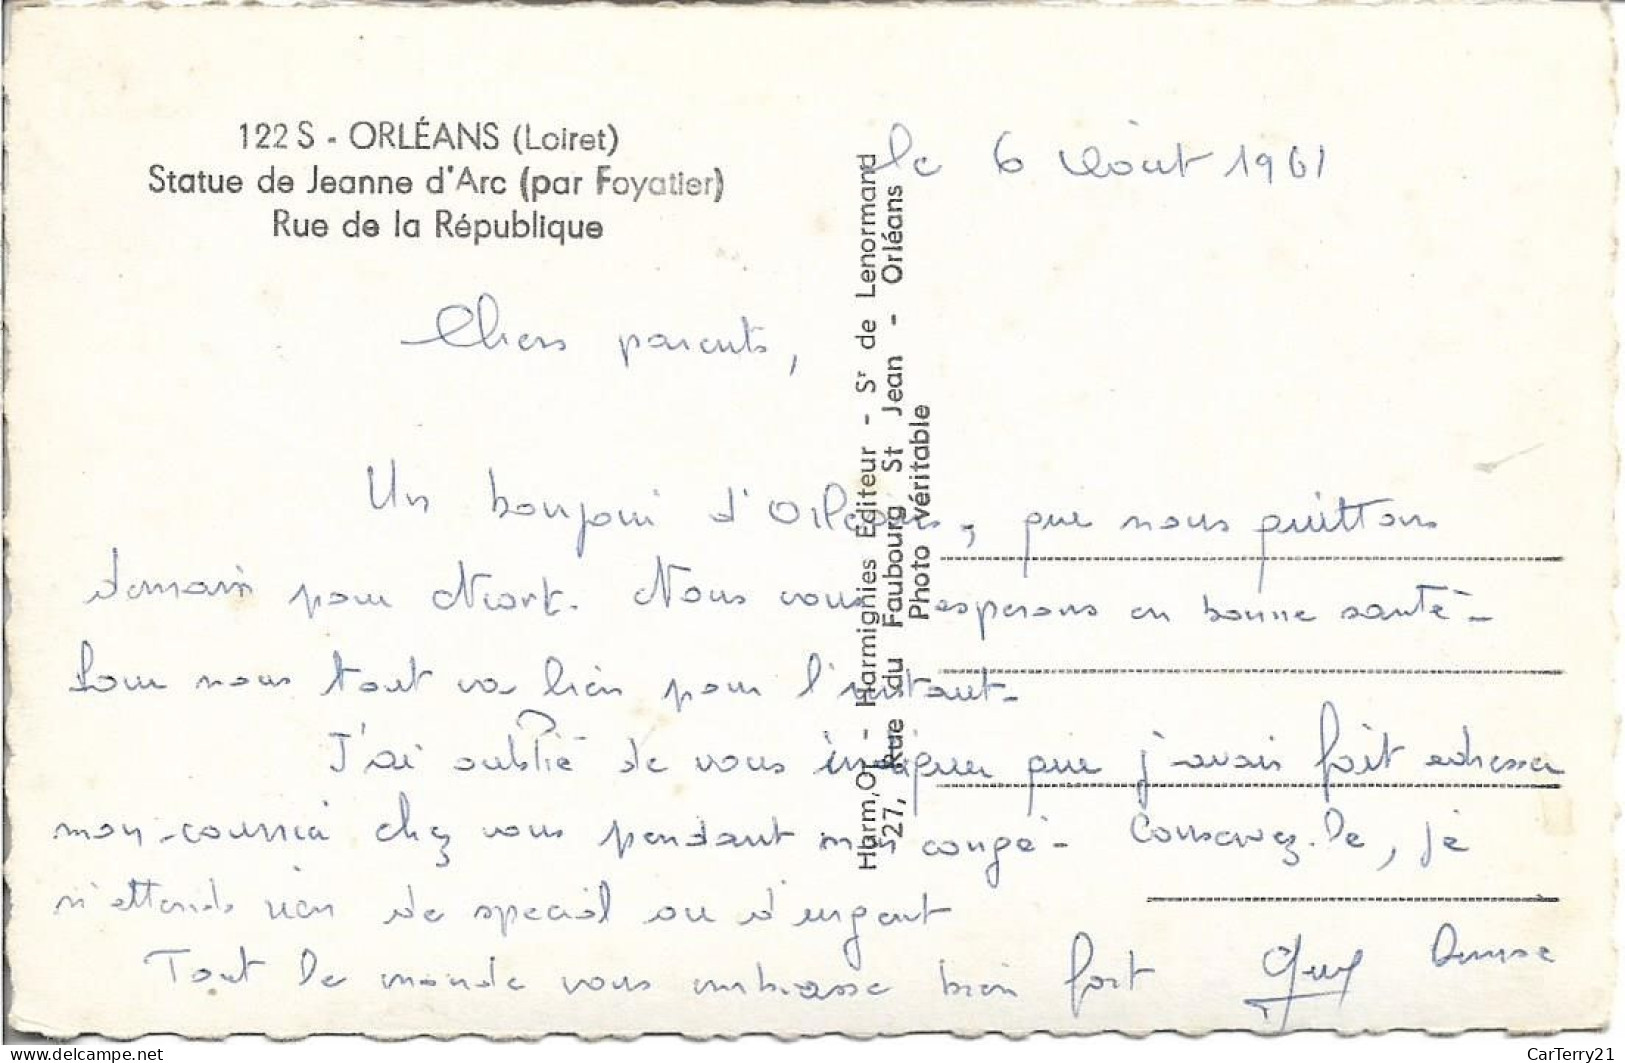 122 S - ORLÉANS (Loiret)
Statue de Jeanne d'Arc (par Foyatier)
Rue de la République
le 6 Août 1961
Chers parents,
Un bonjour d'Orléans, que nous quittons
demain pour Niort. Nous vous esperons en bonne santé -
Pour nous tout va bien pour l'instant -
J'ai oublié de vous indiquer que j'avais fait adresser
mon courrier chez vous pendant mon congé - Conservez-le, je
n'attends rien de special ou d'urgent
Tout le monde vous embrasse bien fort Guy Denise
Harm, Or - Harmignies Editeur - Sr de Lenormand
27, Rue du Faubourg St Jean - Orléans
Photo Véritable
CarTerry21